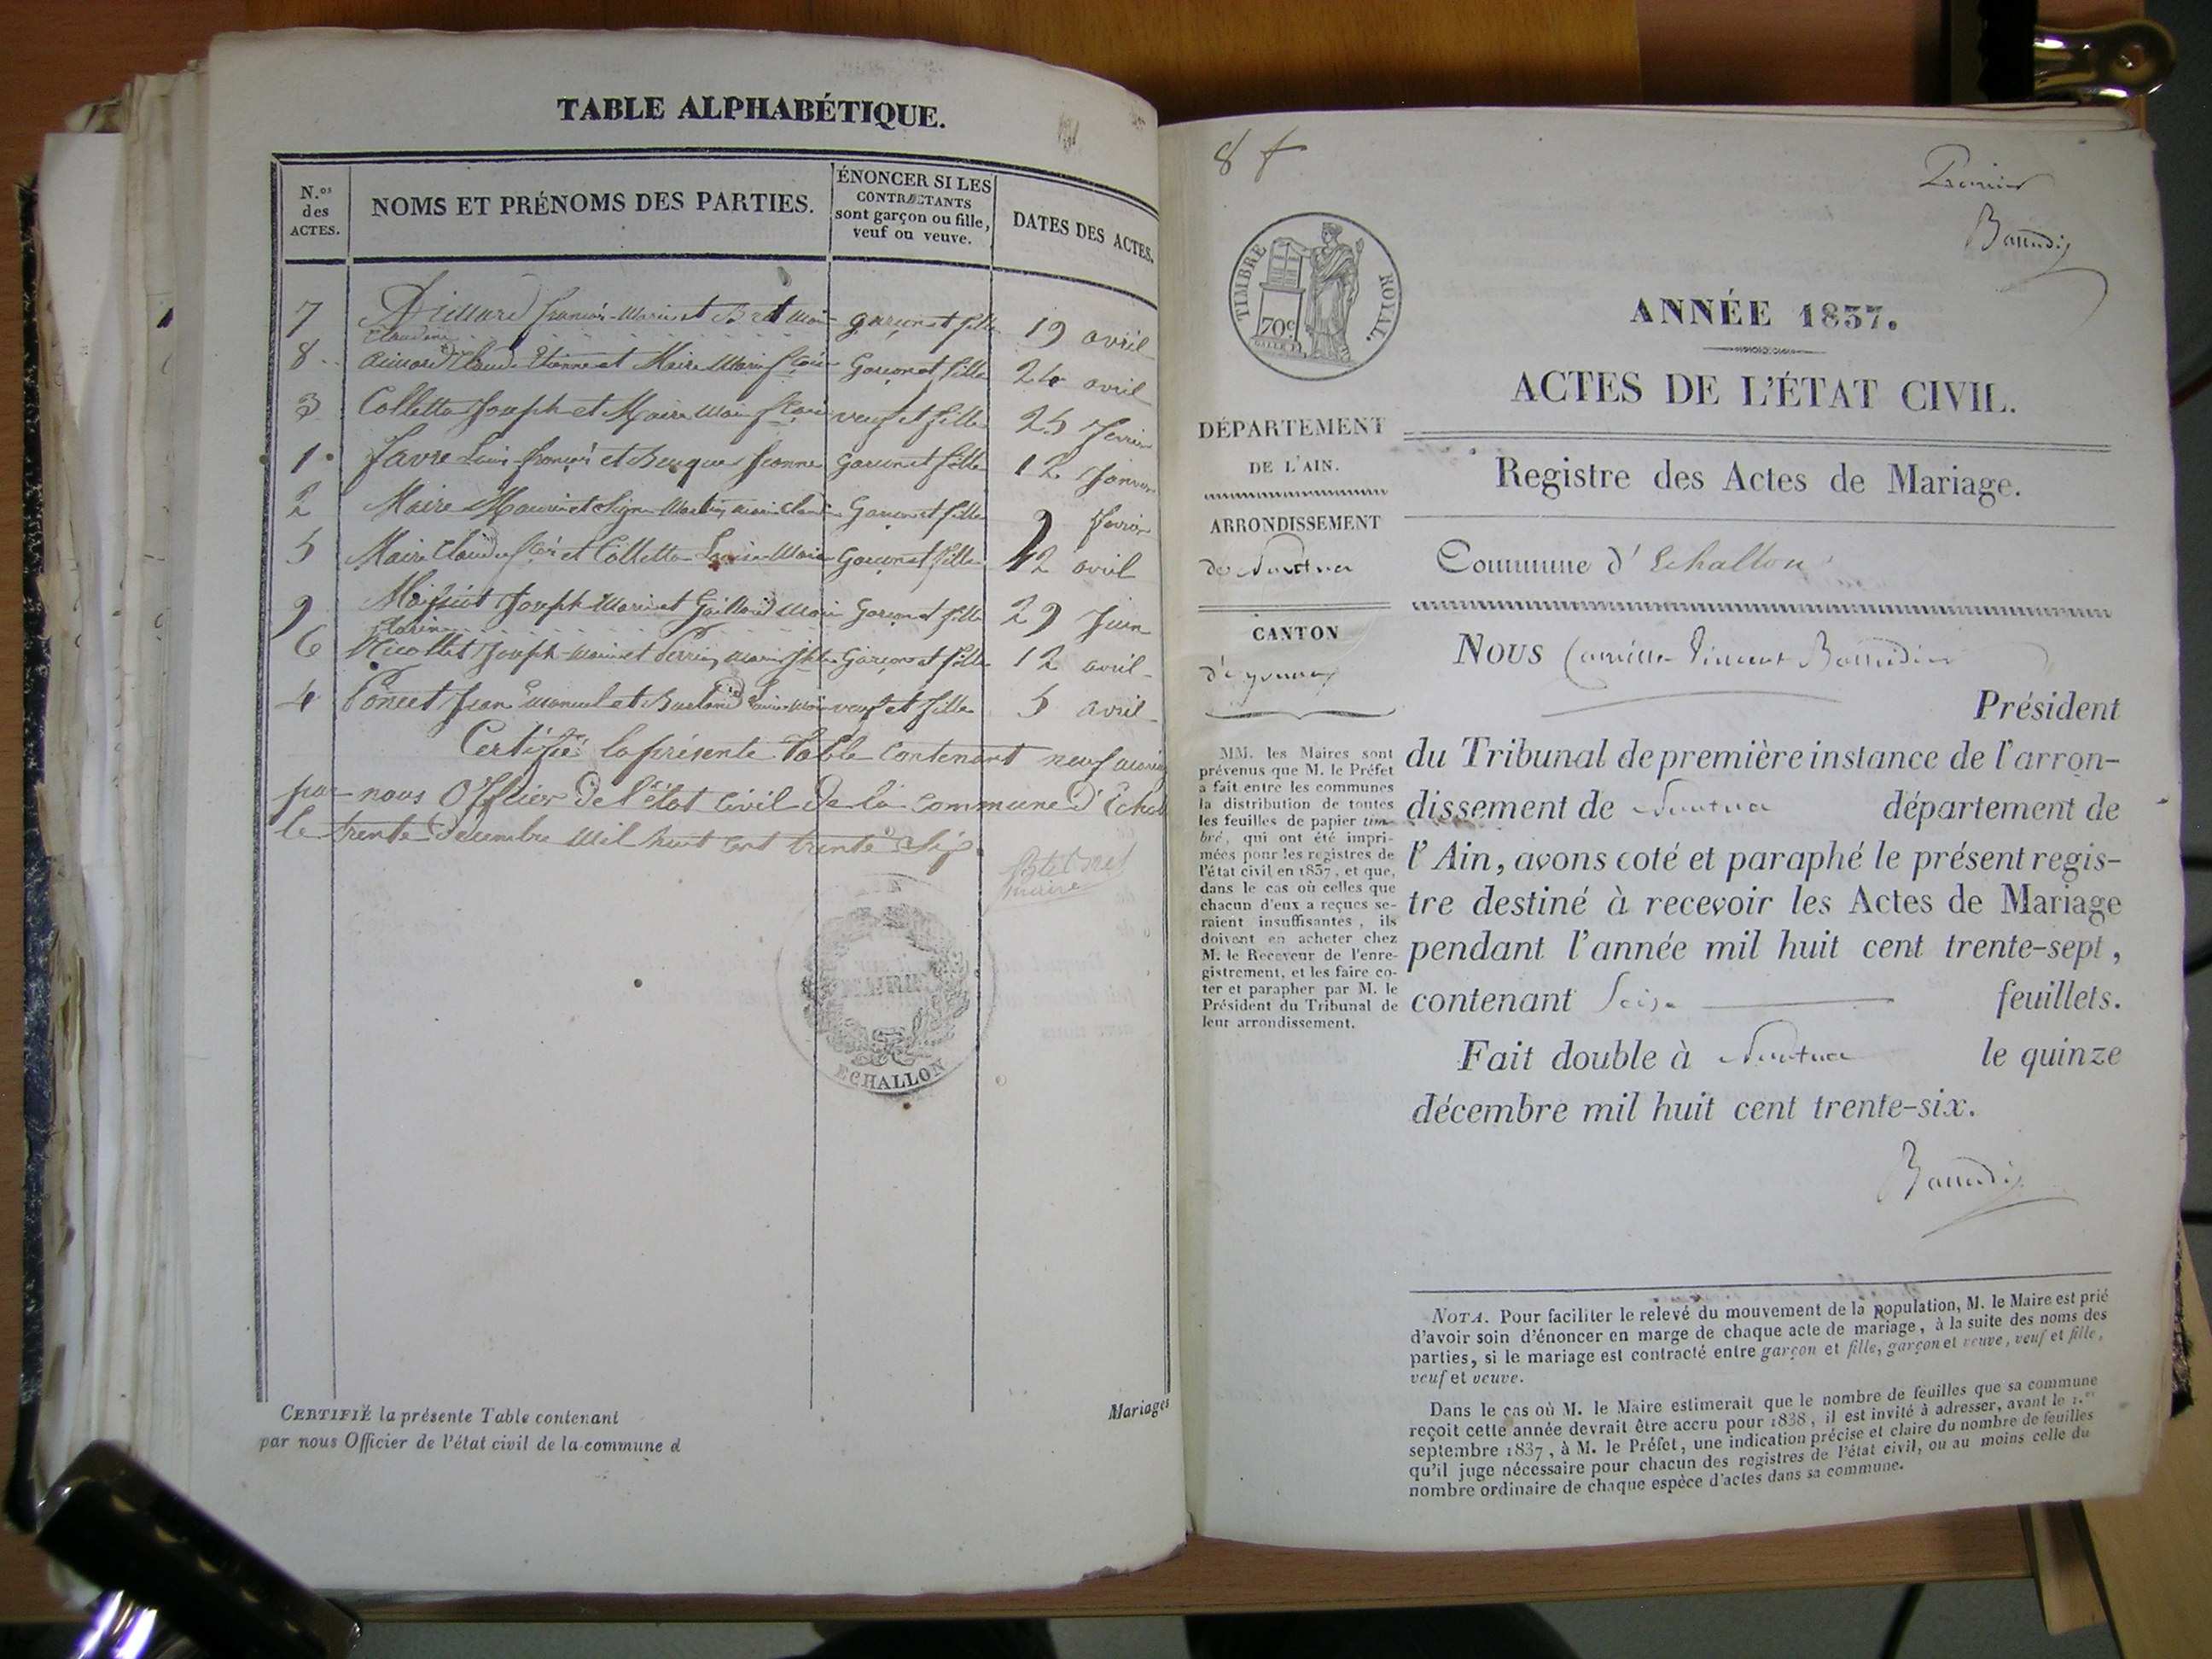 TABLE ALPHABÉTIQUE.
N.os des ACTES.
NOMS ET PRÉNOMS DES PARTIES.
ÉNONCER SI LES
CONTRACTANTS
sont garçon ou fille,
veuf ou veuve.
DATES DES ACTES.
7 françois-Marie et garçon et fille 19 avril
Claudine
8 aimard Claude Etienne et Maire Marie garçon et fille 24 avril
3 Colletta Joseph et Maire Marie veuf et fille 25 fevrier
1 Favre Louis françois et Jeanne garçon et fille 12 Janvier
2 Maire garçon et fille 9 fevrier
5 Maire Claude et Colletta Louise Marie garçon et fille 12 avril
9 Joseph Marie et Gaillard Marie garçon et fille 29 Juin
6 Nicollet Joseph-Marie et Perrin Marie garçon et fille 12 avril
4 Poncet Jean Emanuel et veuf et fille 5 avril
Certifié la présente Table contenant neuf
par nous Officier de l'état civil de la commune d'Echal
le trente decembre mil huit cent trente Six.
maire
MAIRIE
ECHALLON
CERTIFIÉ la présente Table contenant
par nous Officier de l'état civil de la commune d
Mariages
8 f
Premier
Baudin
TIMBRE ROYAL.
70c
ANNÉE 1837.
ACTES DE L'ÉTAT CIVIL.
DÉPARTEMENT
DE L'AIN.
ARRONDISSEMENT
de Nantua
CANTON
d'oyonnax
MM. les Maires sont
prévenus que M. le Préfet
a fait entre les communes
la distribution de toutes
les feuilles de papier tim-
bré, qui ont été impri-
mées pour les registres de
l'état civil en 1837, et que,
dans le cas où celles que
chacun d'eux a reçues se-
raient insuffisantes, ils
doivent en acheter chez
M. le Receveur de l'enre-
gistrement, et les faire co-
ter et parapher par M. le
Président du Tribunal de
leur arrondissement.
Registre des Actes de Mariage.
Commune d'Echallon
NOUS Camille Vincent Baudin
Président
du Tribunal de première instance de l'arron-
dissement de Nantua département de
l'Ain, avons coté et paraphé le présent regis-
tre destiné à recevoir les Actes de Mariage
pendant l'année mil huit cent trente-sept,
contenant Seize feuillets.
Fait double à Nantua le quinze
décembre mil huit cent trente-six.
Baudin
NOTA. Pour faciliter le relevé du mouvement de la population, M. le Maire est prié
d'avoir soin d'énoncer en marge de chaque acte de mariage, à la suite des noms des
parties, si le mariage est contracté entre garçon et fille, garçon et veuve, veuf et fille,
veuf et veuve.
Dans le cas où M. le Maire estimerait que le nombre de feuilles que sa commune
reçoit cette année devrait être accru pour 1838, il est invité à adresser, avant le 1.er
septembre 1837, à M. le Préfet, une indication précise et claire du nombre de feuilles
qu'il juge nécessaire pour chacun des registres de l'état civil, ou au moins celle du
nombre ordinaire de chaque espèce d'actes dans sa commune.